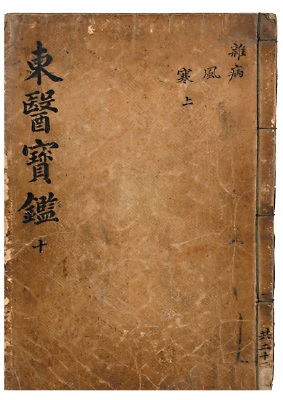 雜病
風
寒上
東醫寶鑑 十
共二十